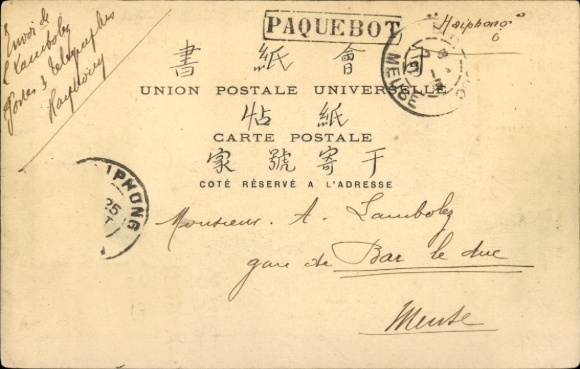 Envoi de
L Lambolez
Postes & Télégraphes
Haiphong
PAQUEBOT
"Haiphong"
6
MEUSE
書 紙 會
UNION POSTALE UNIVERSELLE
帖 紙
CARTE POSTALE
家 號 寄 于
COTÉ RÉSERVÉ A L'ADRESSE
IPHONG
25
Monsieur A. Lambolez
gare de Bar le duc
Meuse